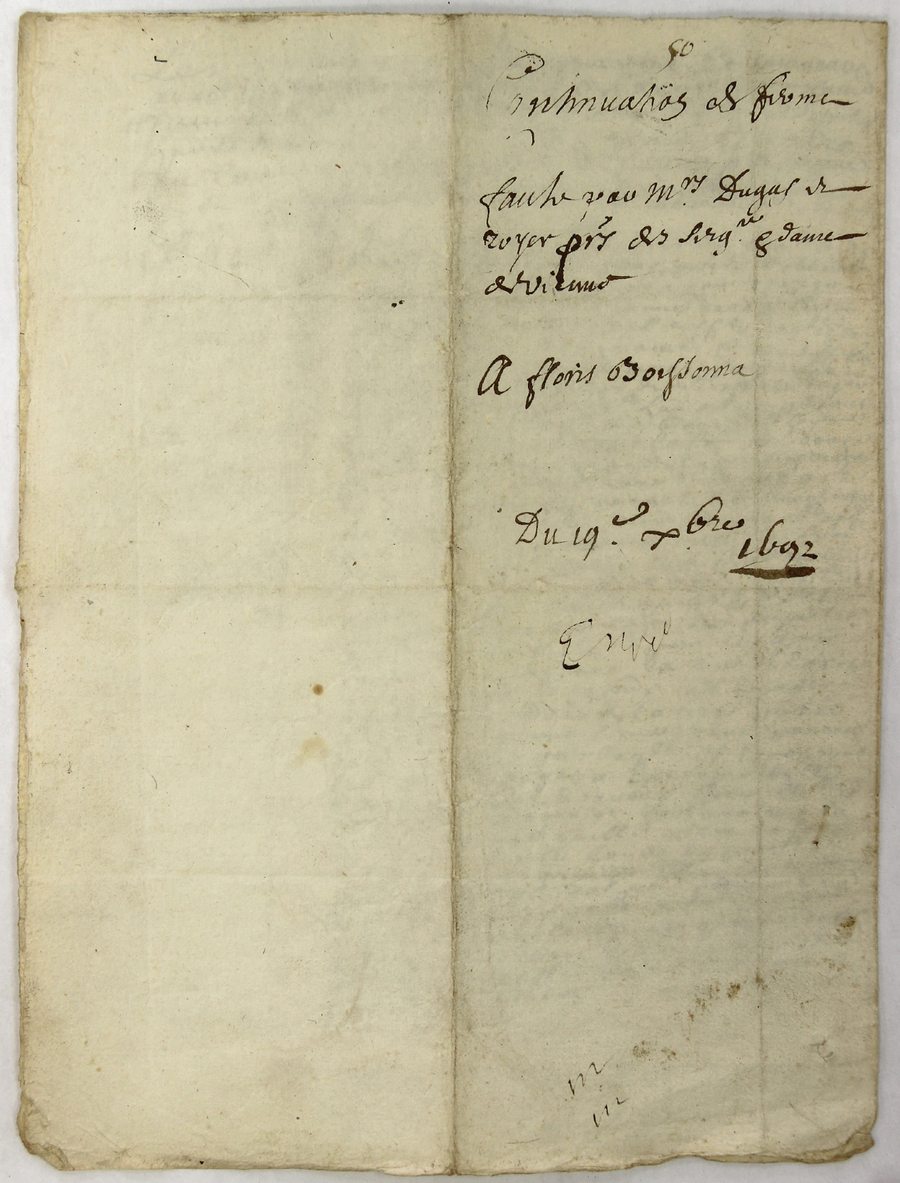 50
Continuation de ferme
faicte par Mrs Dugas et
royer prs des seigr & dame
de vienne
A floris Boissonna
Du 19e xbre
1692